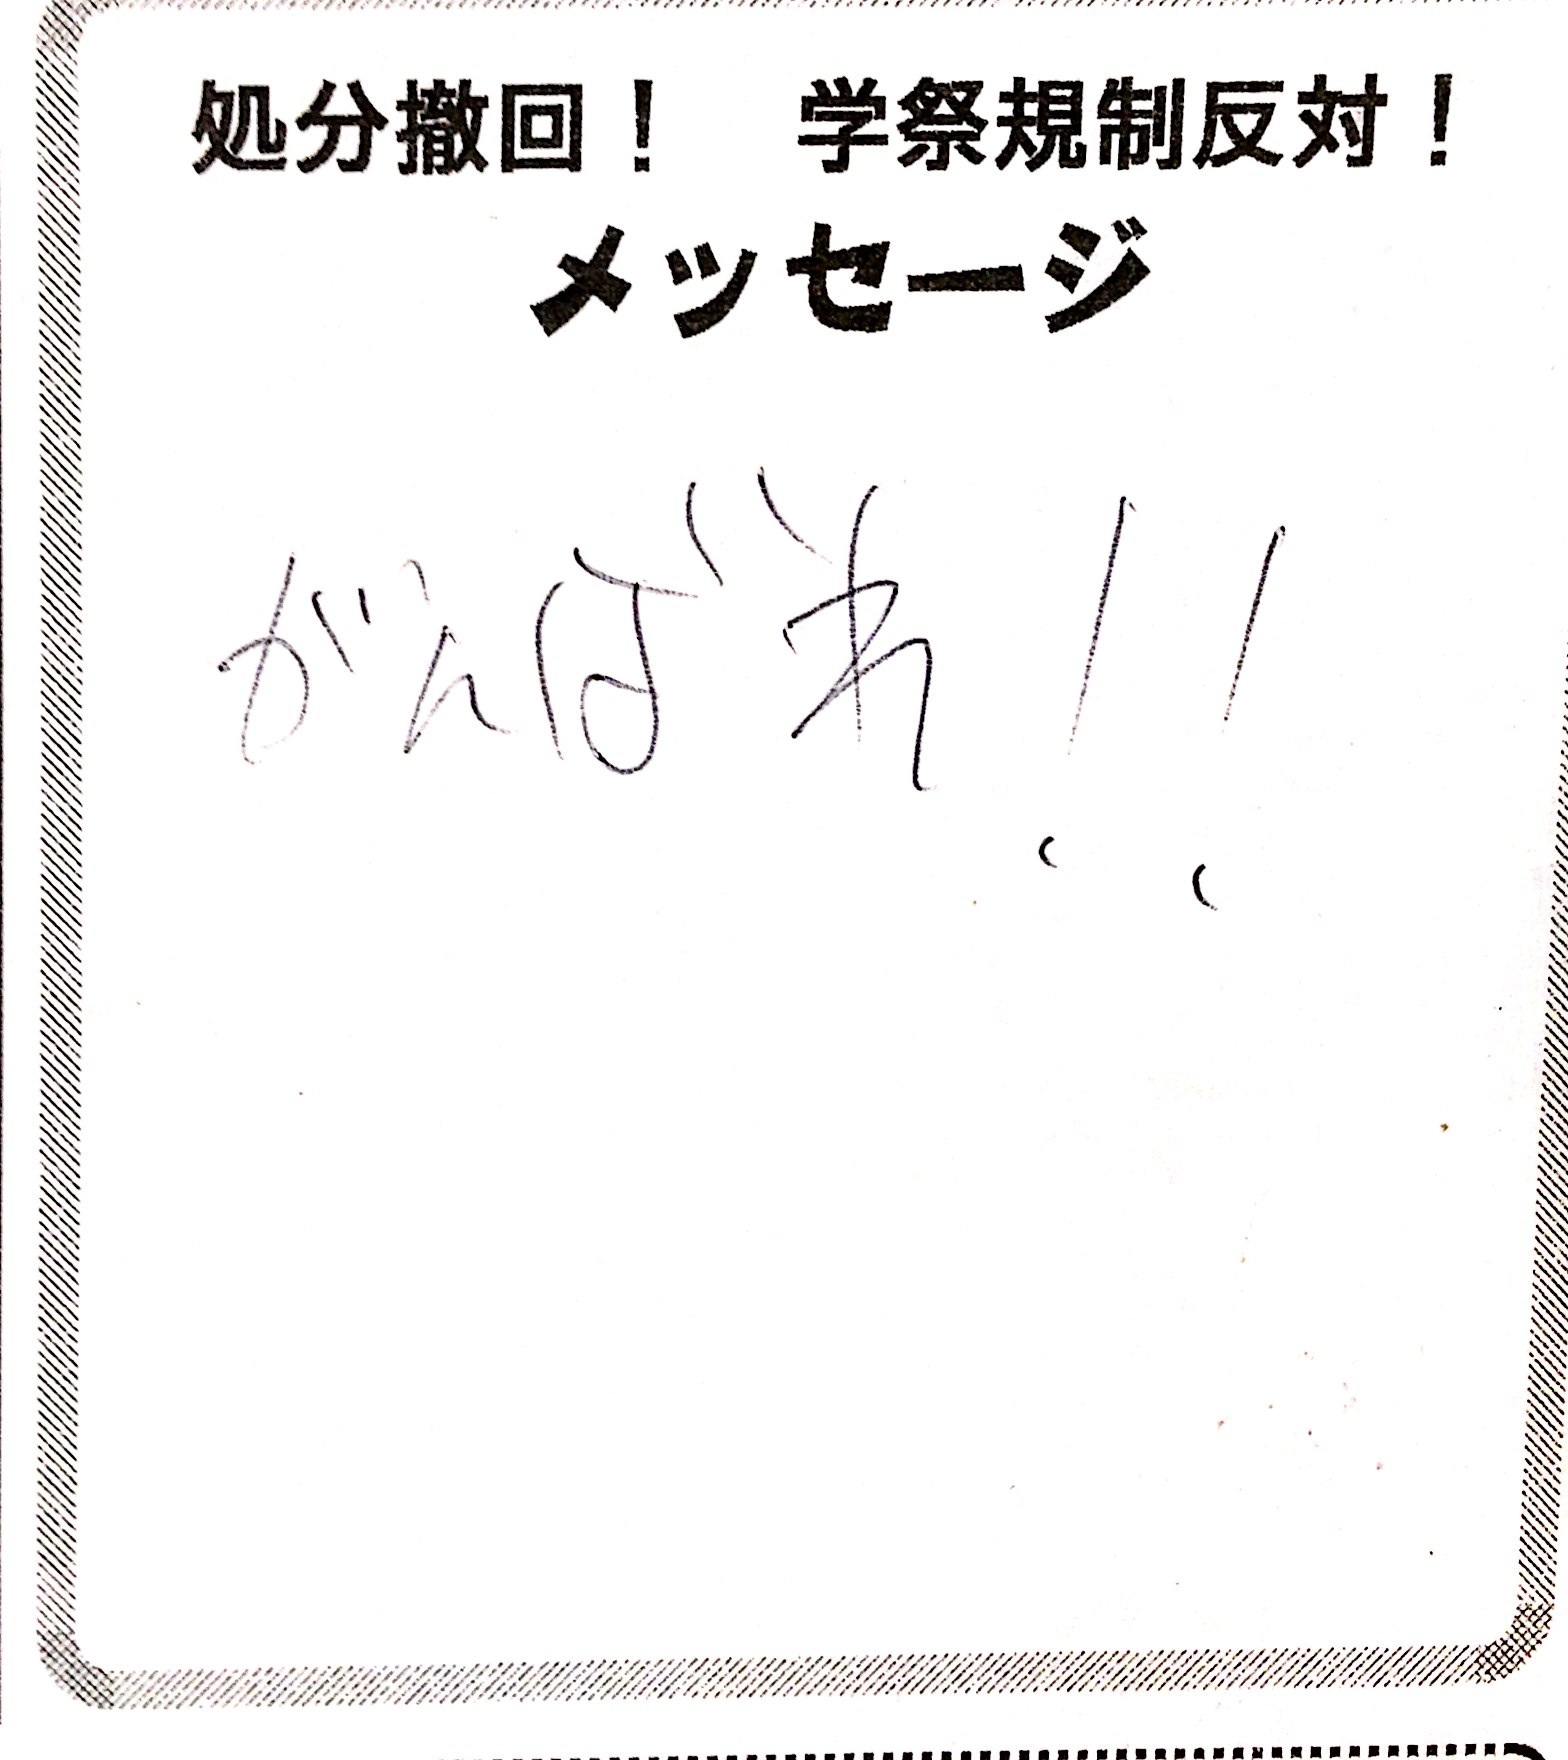 処分撤回！　学祭規制反対！
メッセージ
がんばれ！！